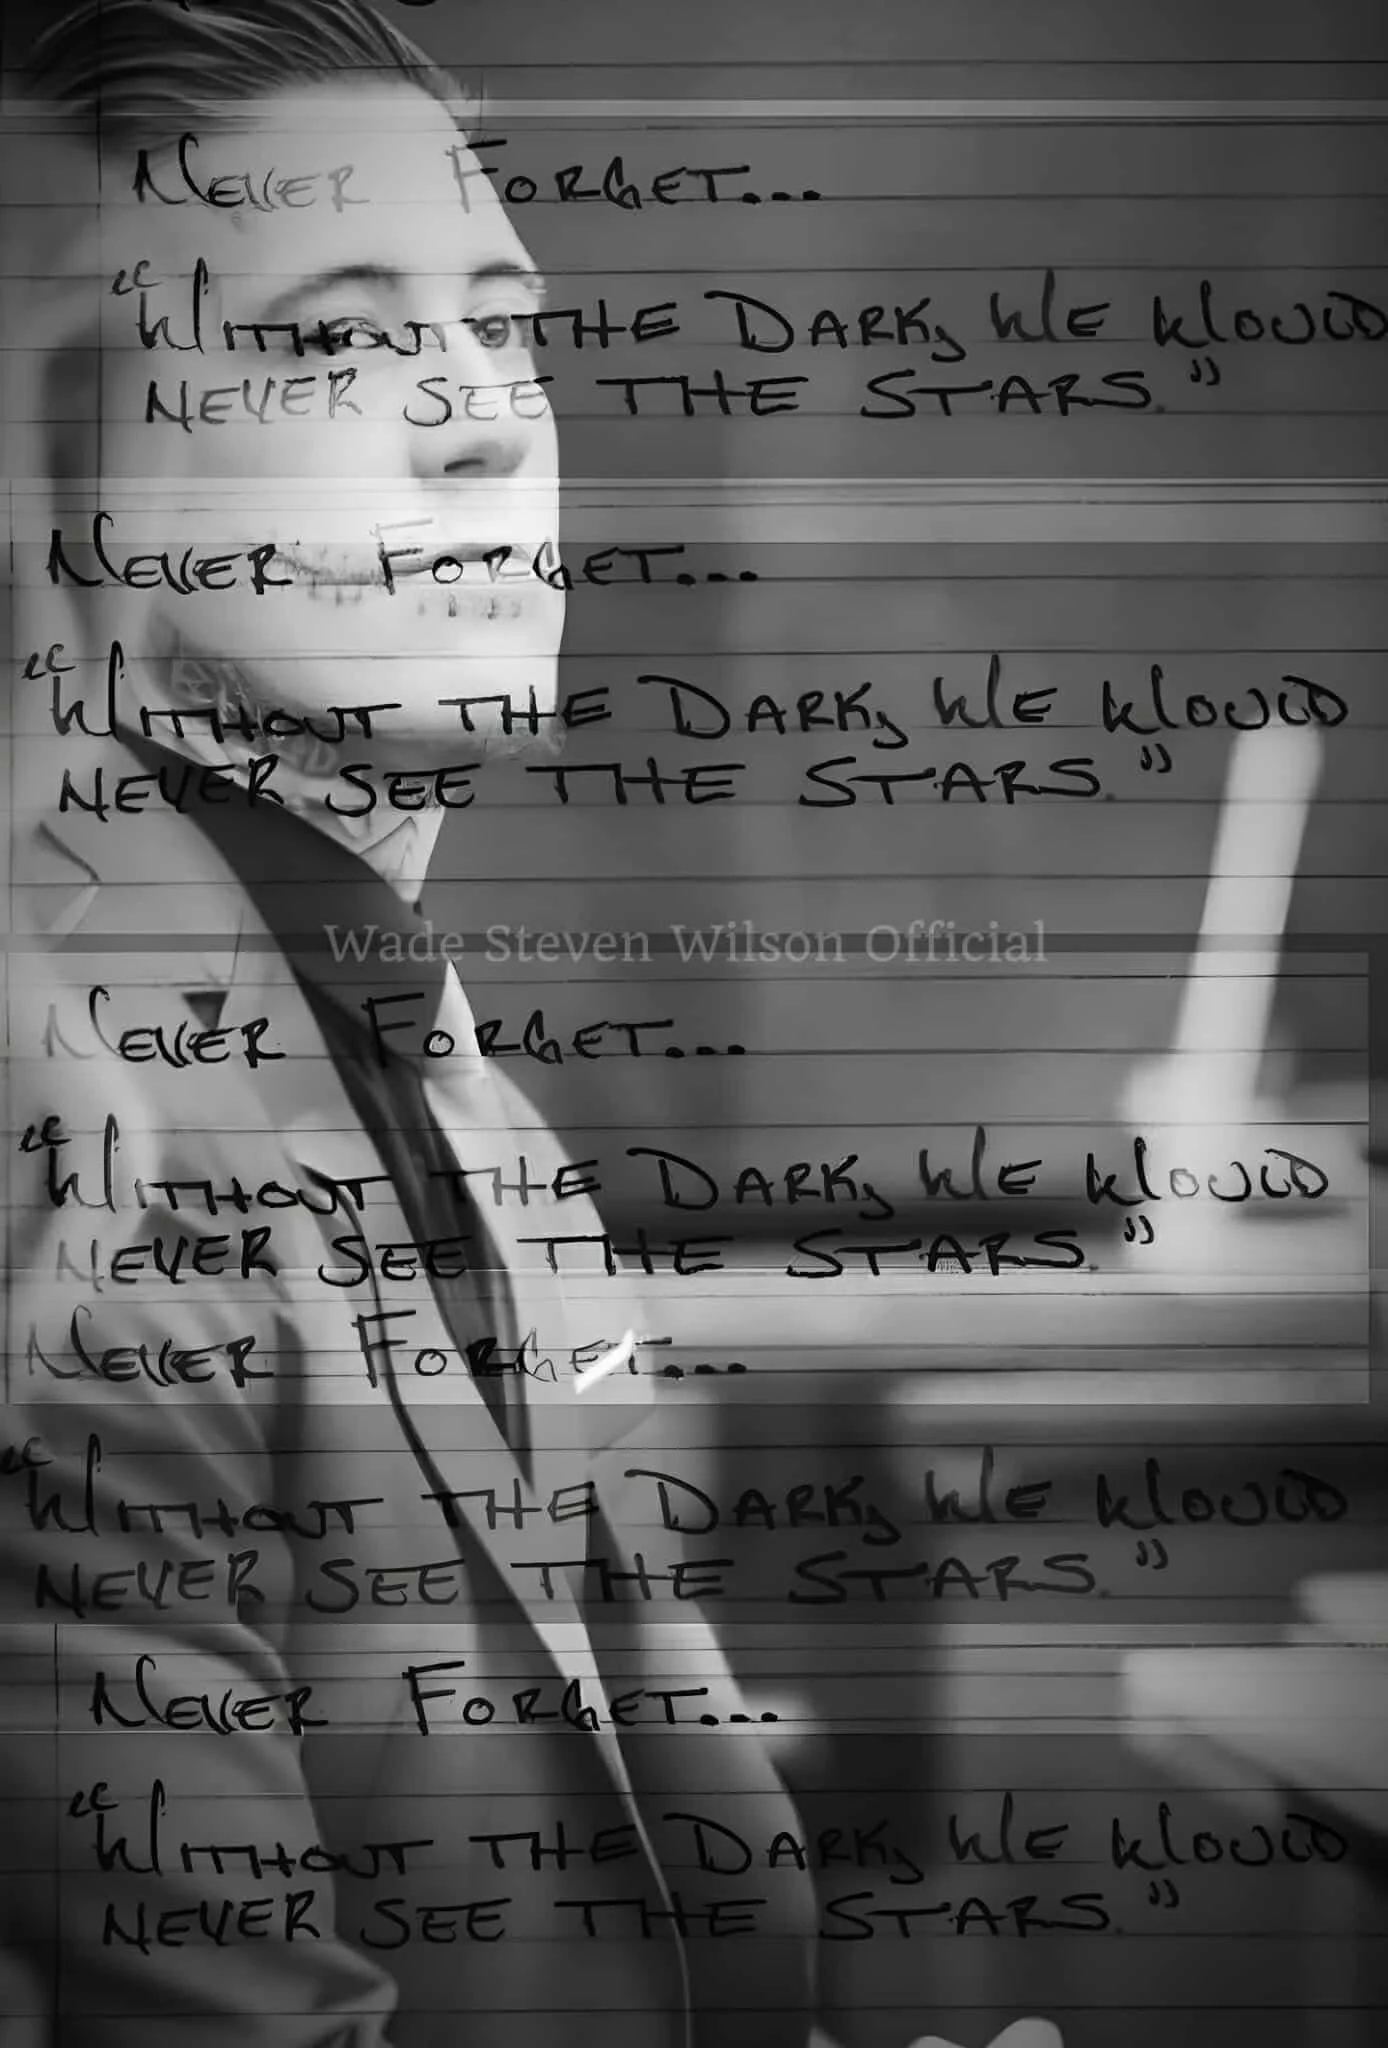 Never Forget...
"Without the Dark, We Would
Never See The Stars."
Never Forget...
"Without the Dark, We Would
Never See The Stars."
Wade Steven Wilson Official
Never Forget...
"Without the Dark, We Would
Never See The Stars."
Never Forget...
"Without the Dark, We Would
Never See The Stars."
Never Forget...
"Without the Dark, We Would
Never See The Stars."